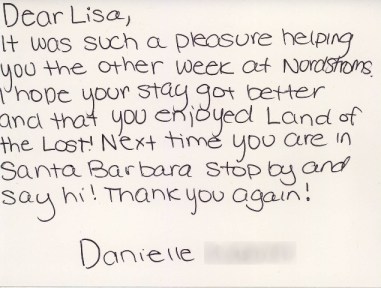 Dear Lisa,
It was such a pleasure helping
you the other week at Nordstroms.
I hope your stay got better
and that you enjoyed Land of
the Lost! Next time you are in
Santa Barbara stop by and
say hi! Thank you again!
Danielle